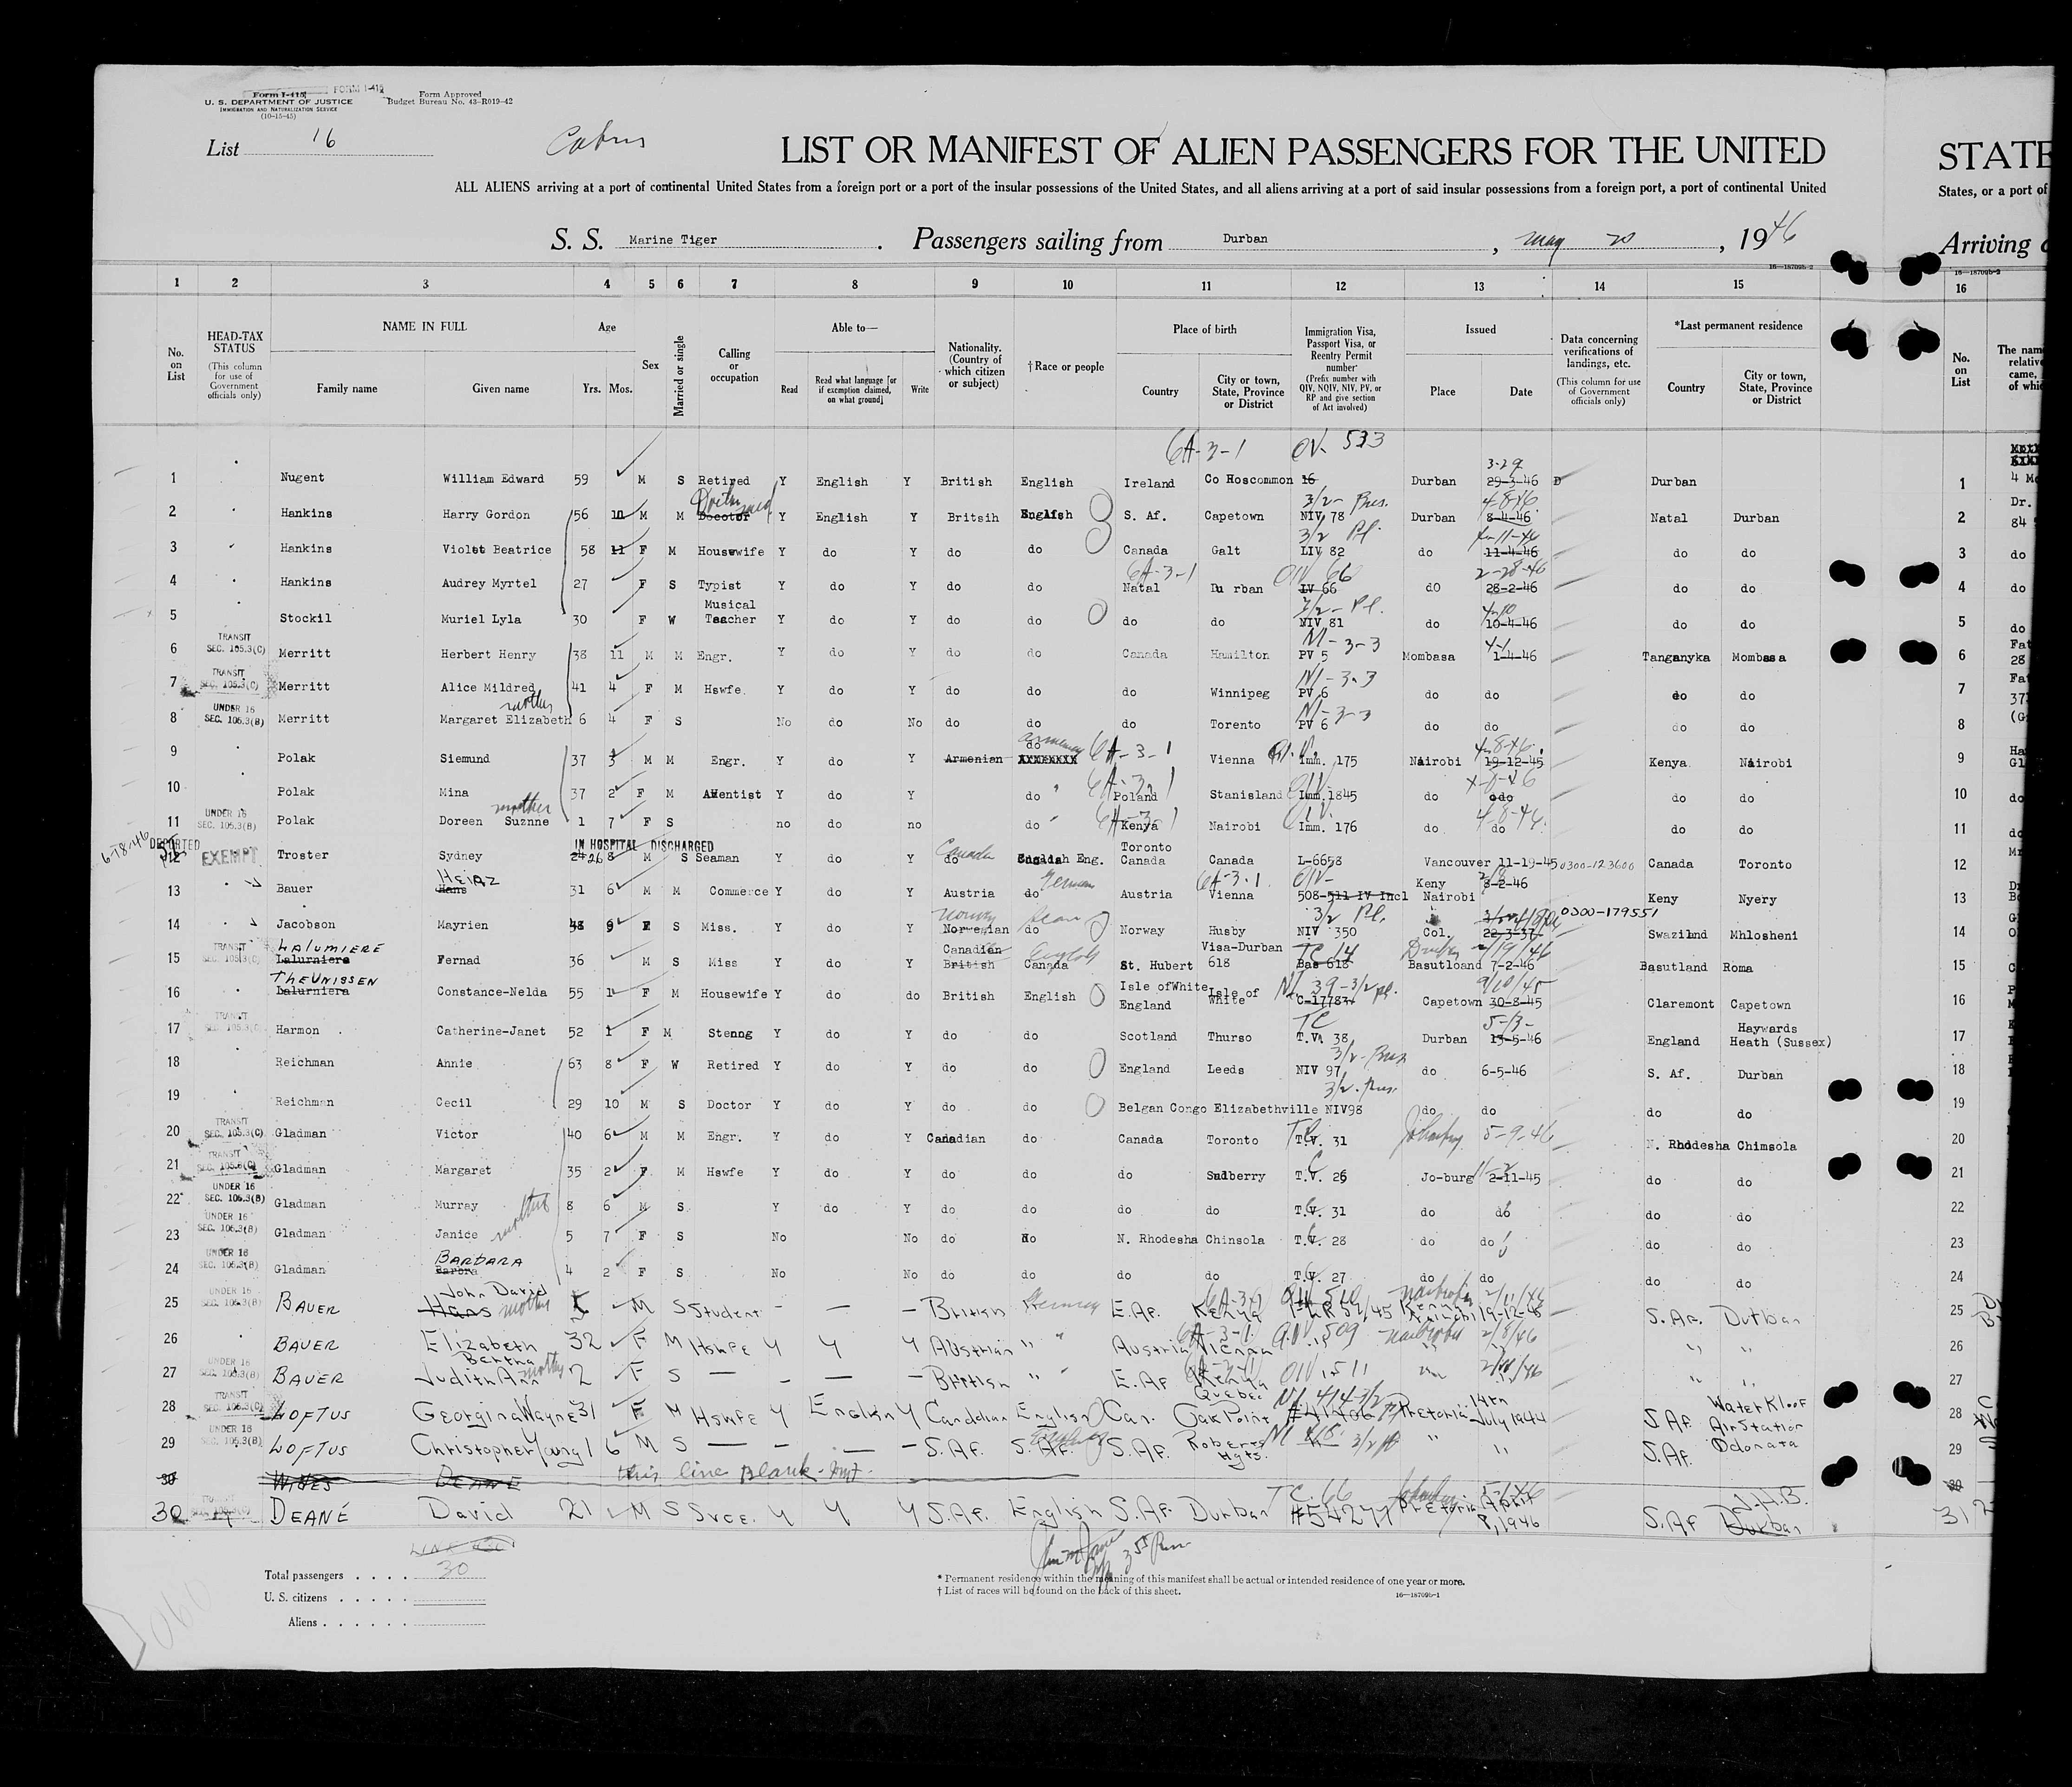 Form I-415 FORM I-419
U. S. DEPARTMENT OF JUSTICE
IMMIGRATION AND NATURALIZATION SERVICE
(10-15-45)
Form Approved
Budget Bureau No. 43-R019-42
List 16
Cabin
LIST OR MANIFEST OF ALIEN PASSENGERS FOR THE UNITED STATE
ALL ALIENS arriving at a port of continental United States from a foreign port or a port of the insular possessions of the United States, and all aliens arriving at a port of said insular possessions from a foreign port, a port of continental United
States, or a port of
S. S. Marine Tiger. Passengers sailing from Durban, May 20, 1946
Arriving
16—18709b-2
1 2 3 4 5 6 7 8 9 10 11 12 13 14 15 16
No. on List
HEAD-TAX STATUS
(This column for use of Government officials only)
NAME IN FULL
Family name Given name
Age
Yrs. Mos.
Sex
Married or single
Calling or occupation
Able to—
Read
Read what language [or if exemption claimed, on what ground]
Write
Nationality. (Country of which citizen or subject)
†Race or people
Place of birth
Country
City or town, State, Province or District
Immigration Visa, Passport Visa, or Reentry Permit number
(Prefix number with QIV, NQIV, NIV, PV, or RP and give section of Act involved)
Issued
Place Date
Data concerning verifications of landings, etc.
(This column for use of Government officials only)
*Last permanent residence
Country
City or town, State, Province or District
No. on List
6A-3-1 QIV. 533
1 Nugent William Edward 59 M S Retired Y English Y British English Ireland Co Hoscommon 16 Durban 3-29 29-3-46 D Durban 1
2 Hankins Harry Gordon 56 10 M M Docotor Y English Y Britsih English S. Af. Capetown 3/2- Bus. NIV 78 Durban 8-4-46 Natal Durban 2
3 Hankins Violet Beatrice 58 11 F M Housewife Y do Y do do Canada Galt 3/2 Pl. LIV 82 do 11-4-46 do do 3
4 Hankins Audrey Myrtel 27 F S Typist Y do Y do do 6A-3-1 Natal Du rban QIV 66 LV 66 dO 2-28-46 28-2-46 do do 4
5 Stockil Muriel Lyla 30 F W Musical Teacher Y do Y do do do do 3/2- Pl. NIV 81 do 4-10 10-4-46 do do 5
6 TRANSIT SEC. 105.3(C) Merritt Herbert Henry 38 11 M M Engr. Y do Y do do Canada Hamilton NI-3-3 PV 5 Mombasa 4-1 1-4-46 Tanganyka Mombasa 6
7 TRANSIT SEC. 105.3(C) Merritt Alice Mildred 41 4 F M Hswfe. Y do Y do do do Winnipeg NI-3-3 PV 6 do do do do 7
8 UNDER 16 SEC. 105.3(B) Merritt Margaret Elizabeth mother 6 4 F S No do No do do do Torento NI-3-3 PV 6 do do do do 8
9 Polak Siemund 37 3 M M Engr. Y do Y Armenian do 6A-3-1 Vienna Imm. 175 Nairobi 4-8-46 19-12-45 Kenya Nairobi 9
10 Polak Mina 37 2 F M Y do Y do 6A-3-1 Poland Stanisland QIV Imm.1845 do do do do 10
11 UNDER 16 SEC. 105.3(B) Polak Doreen Suznne mother 1 7 F S no do no do 6A-3-1 Kenya Nairobi Imm. 176 do 4-8-46 do do do 11
6-18-46 DEPORTED 12 EXEMPT Troster Sydney IN HOSPITAL DISCHARGED 26 8 M S Seaman Y do Y do Canada English Eng. Toronto Canada Canada L-6658 Vancouver 11-19-45 0300-123600 Canada Toronto 12
13 Bauer Hans HEINZ 31 6 M M Commerce Y do Y Austria do German Austria 6A-3-1 Vienna QIV- 508-511 IV Incl Keny Nairobi 8-2-46 Keny Nyery 13
14 Jacobson Mayrien 48 9 F S Miss. Y do Y Norwegian do Norway Husby 3/2 Pl. NIV 350 Col. 22-3-37 0300-179551 Swazilnd Mhlosheni 14
15 TRANSIT SEC. 105.3(C) Lalurniere LALUMIERE Fernad 36 M S Miss Y do Y Canadian British Canada English St. Hubert Visa-Durban 618 TC 14 Bas 618 Basutloand 2/19/46 7-2-46 Basutland Roma 15
16 Lalurniere THEUNISSEN Constance-Nelda 55 1 F M Housewife Y do do British English Isle ofWhite England Isle of White NI 39-3/2 Pl. C-17783 Capetown 9/10/45 30-8-45 Claremont Capetown 16
17 TRANSIT SEC. 105.3(C) Harmon Catherine-Janet 52 1 F M Stenog Y do Y do do Scotland Thurso TC T.V. 38 Durban 5-13- 13-5-46 England Haywards Heath (Sussex) 17
18 Reichman Annie 63 8 F W Retired Y do Y do do England Leeds NIV 97 3/2-Bus do 6-5-46 S. Af. Durban 18
19 Reichman Cecil 29 10 M S Doctor Y do Y do do Belgan Congo Elizabethville NIV98 3/2. Bus. do do do do 19
20 TRANSIT SEC. 105.3(C) Gladman Victor 40 6 M M Engr. Y do Y Canadian do Canada Toronto TC T.V. 31 Johburg 5-9-46 N. Rhodesha Chimsola 20
21 TRANSIT SEC. 105.3(C) Gladman Margaret 35 2 F M Hswfe Y do Y do do do Sudberry T.V. 26 Jo-burg 2-11-45 do do 21
22 UNDER 16 SEC. 105.3(B) Gladman Murray 8 6 M S Y do Y do do do do T.V. 31 do do do do 22
23 UNDER 16 SEC. 105.3(B) Gladman Janice mother 5 7 F S No No do do N. Rhodesha Chinsola T.V. 28 do do do do 23
24 UNDER 16 SEC. 105.3(B) Gladman Barbra BARBARA 4 2 F S No No do do do do T.V. 27 do do do do 24
25 UNDER 16 SEC. 105.3(B) BAUER Hans John David mother 5 M S Student - — - British E.Af. 6A-3-1 Kenya QIV 510 Nairobi 2/11/46 19-12-45 S.Af. Durban 25
26 BAUER Elizabeth Bertha 32 F M HswFe Y Y Y Austrian " " Austria 6A-3-1 Vienna QIV. 509 Nairobi 2/8/46 " " 26
27 UNDER 16 SEC. 105.3(B) BAUER Judith Ann mother 2 F S — - — - British " " E.Af Kenya QIV 511 " " 27
28 TRANSIT SEC. 105.3(C) LOFTUS Georgina Wayne 31 F M HswFe Y English Y Canadian English Can. Quebec Oak Point NI 414-3/2 #41406 Pretoria 14th July 1944 S.Af. WaterKloof AirStation 28
29 UNDER 16 SEC. 105.3(B) LOFTUS Christopher Young 1 6 M S — - — - S.Af. S.Af. S.Af. Roberts Hgts. NI 415 3/2 Pl " " S.Af. Odonata 29
30 WINES DEANE this line Blank- 30
30 DEANE David 21 M S Svce. Y Y Y S.Af. English S.Af. Durban T.C. 66 #54277 Pretoria April 8, 1946 S.Af J.H.B. Durban 31
Total passengers . . . . 30
U. S. citizens . . . . .
Aliens . . . . . .
* Permanent residence within the meaning of this manifest shall be actual or intended residence of one year or more.
† List of races will be found on the back of this sheet.
16—18709b-1